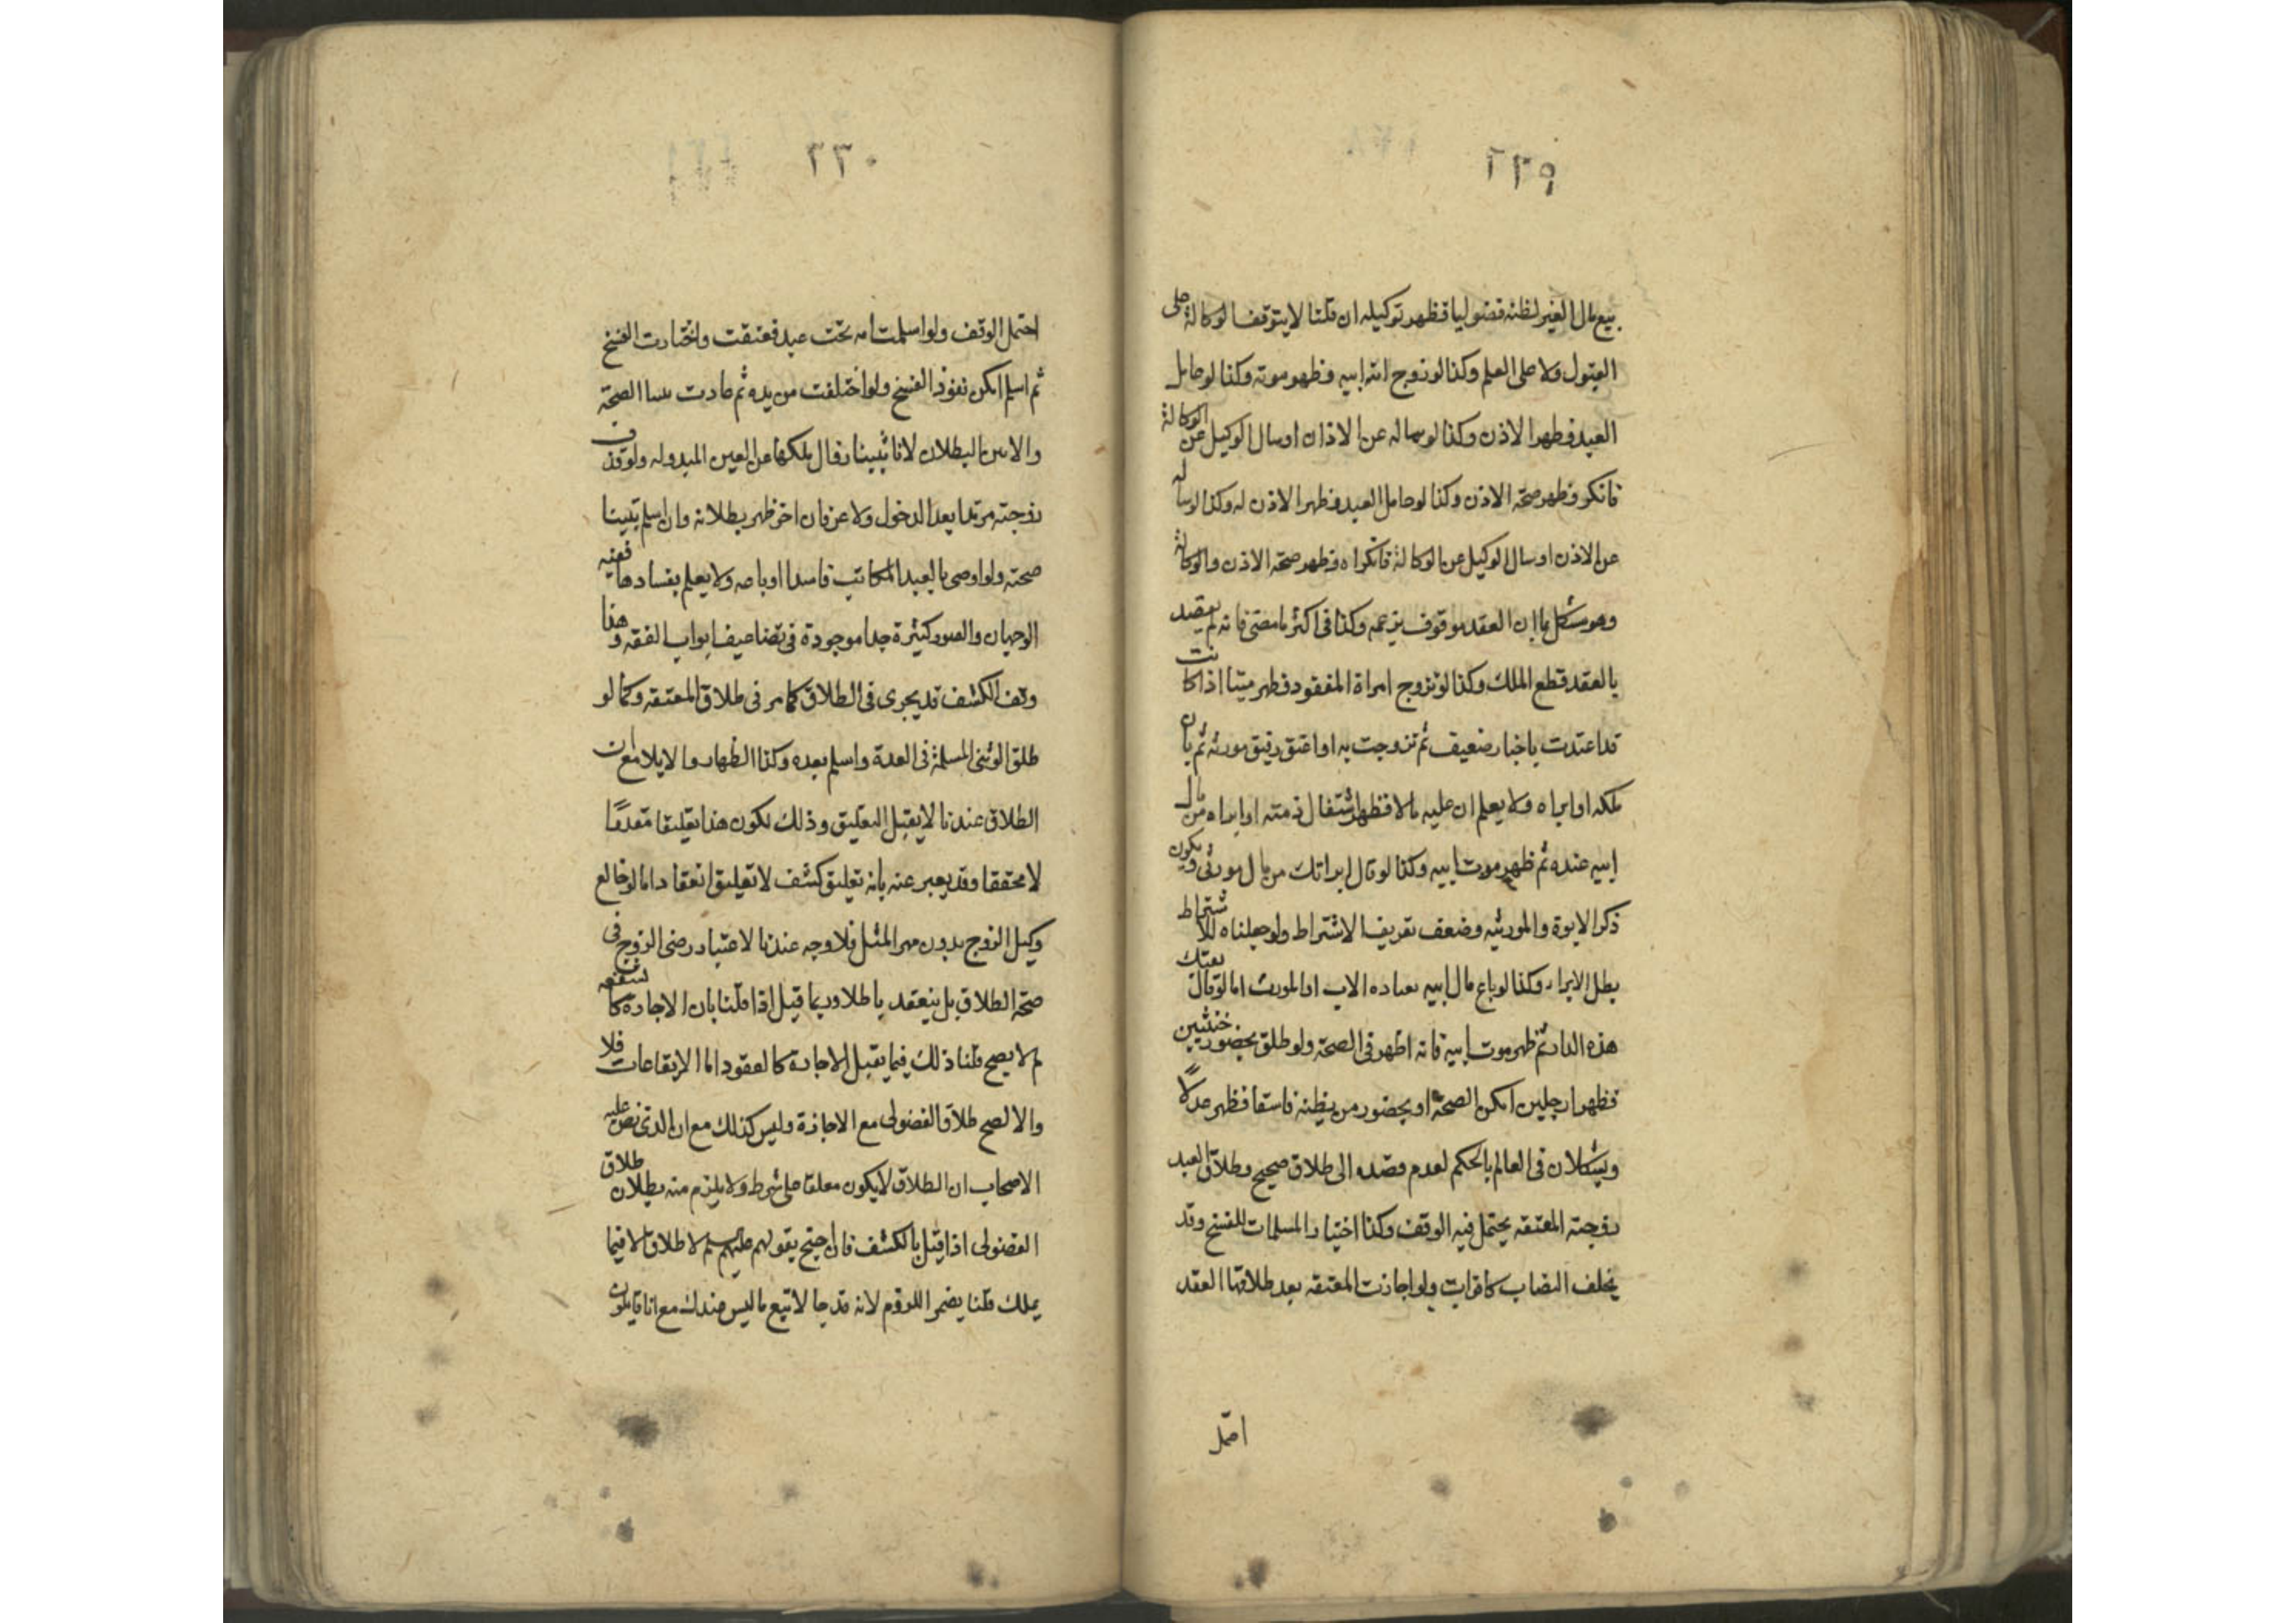 ٢٢٩
بيع مال الغير لظنه فضوليا فظهر توكيله ان قلنا لا يتوقف الوكالة على
القبول ولا على العلم وكذا لو زوج امة ابيه وظهر موته وكذا لو عامل
العبد فظهر الاذن وكذا لو ساله عن الاذن او سال الوكيل عن الوكالة
فانكر وظهر صحة الاذن وكذا لو عامل العبد فظهر الاذن له وكذا لو ساله
عن الاذن او سال الوكيل عن الوكالة فانكراه وظهر صحة الاذن والوكالة
وهو مشكل اذ العقد موقوف بزعمه وكذا في اكثر ما مضى فانه لم يقصد
بالعقد قطع الملك وكذا لو تزوج امراة المفقود فظهر ميتا اذا كانت
قد اعتدت باخبار ضعيف ثم تزوجت به او اعتق رقيق مورثه ثم بان
ملكه او ابراه ولا يعلم ان عليه مالا فظهر اشتغال ذمته او ابراه من مال
ابيه عنده ثم ظهر موت ابيه وكذا لو قال ابراتك من مال مورثي ويكون
ذكر الابوة والمورثيه وضعف تعريفا لا اشتراط ولو جعلناه للاشتراط
بطل الابراء وكذا لو باع مال ابيه بعباده الاب او المورث اما لو قال بعتك
هذه الدار ثم ظهر موت ابيه فانه اظهر في الصحة ولو طلق بحضور خنثيين
فظهرا رجلين امكن الصحة او بحضور من يظنه فاسقا فظهر عدلا
ويشكلان في العالم بالحكم لعدم قصده الى طلاق صحيح وطلاق العبد
زوجته المعتقه يحتمل فيه الوقف وكذا اختيار المسلمات للفسخ وقد
يخلف النصاب كافرات ولو اجازت المعتقه بعد طلاقها العقد
٢٣٠
احتمل الوقف ولو اسلمت امه تحت عبد فعتقت واختارت الفسخ
ثم اسلم امكن نفوذ الفسخ ولو اختلفت من يده ثم عادت الصحة
والاس البطلان لانا تبينا زوال ملكها عن العين المبدوله ولو قذف
زوجته مرتدا بعد الدخول ولاعن فان اخر ظهر بطلانه وان اسلم تبينا
صحته ولو اوصى بالعبد المكاتب فاسدا او باعه ولا يعلم بفسادها ففيه
الوجهان والصور كثيرة جدا موجودة في تضاعيف ابواب الفقه وهذا
وقف الكشف قد يجري في الطلاق كما مر في طلاق المعتقه وكما لو
طلق الوثني المسلمة في العدة واسلم بعده وكذا الظهار والايلا مع ان
الطلاق عندنا لا يقبل التعليق وذلك لكون هذا تعليقا مقدرا
لا محققا وقد يعبر عنه بانه تعليق كشف لا تعليق انعقاد اما لو خالع
وكيل الزوج بدون مهر المثل فلا وجه عندنا لاعتبار رضى الزوج في
صحة الطلاق بل ينعقد باطلا وربما قيل اذا قلنا بان الاجازة كاشفه
لم لا يصح قلنا ذلك فيما يقبل الاجازة كالعقود اما الايقاعات فلا
والا لصح طلاق الفضولي مع الاجازة وليس كذلك مع ان الذي نص عليه
الاصحاب ان الطلاق لا يكون معلقا على شرط ولا يلزم منه بطلان طلاق
الفضولي اذا قيل بالكشف فان احتج بقولهم عليهم لا طلاق الا فيما
يملك قلنا يضمر اللزوم لانه قد جا لا تبع ما ليس عندك مع انا قايلون